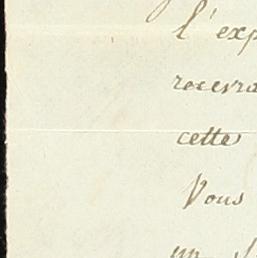 l'exp
recevra
cette
Vous
un